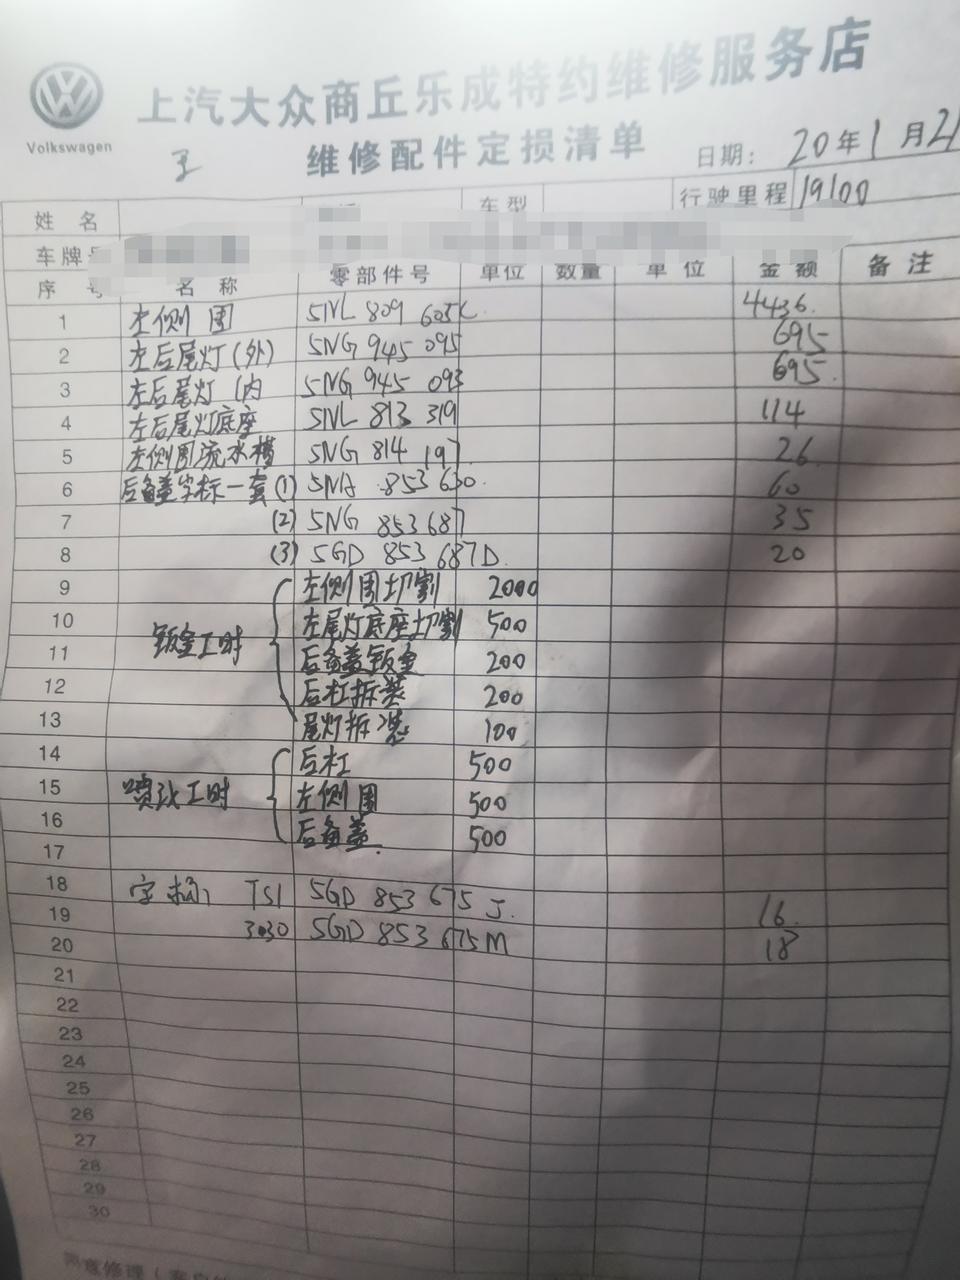 上汽大众商丘乐成特约维修服务店
Volkswagen
维修配件定损清单
日期: 20年1月21
姓名 车型 行驶里程 19100
车牌号
序号 名称 零部件号 单位 数量 单位 金额 备注
1 左侧围 5NL 809 605K 4436.
2 左后尾灯(外) 5NG 945 095 695
3 左后尾灯(内 5NG 945 093 695.
4 左后尾灯底座 5NL 813 319 114
5 左侧围流水槽 5NG 814 197 26
6 后备盖字标一套(1) 5NA 853 630. 60
7 (2) 5NG 853 687 35
8 (3) 5GD 853 687D. 20
9 左侧围切割 2000
10 左尾灯底座切割 500
钣金工时
11 后备盖钣金 200
12 后杠拆装 200
13 尾灯拆装 100
14 后杠 500
15 喷漆工时 左侧围 500
16 后备盖. 500
17
18 字标 TSI 5GD 853 675 J. 16.
19 5GD 853 675M 18
20
21
22
23
24
25
26
27
28
29
30